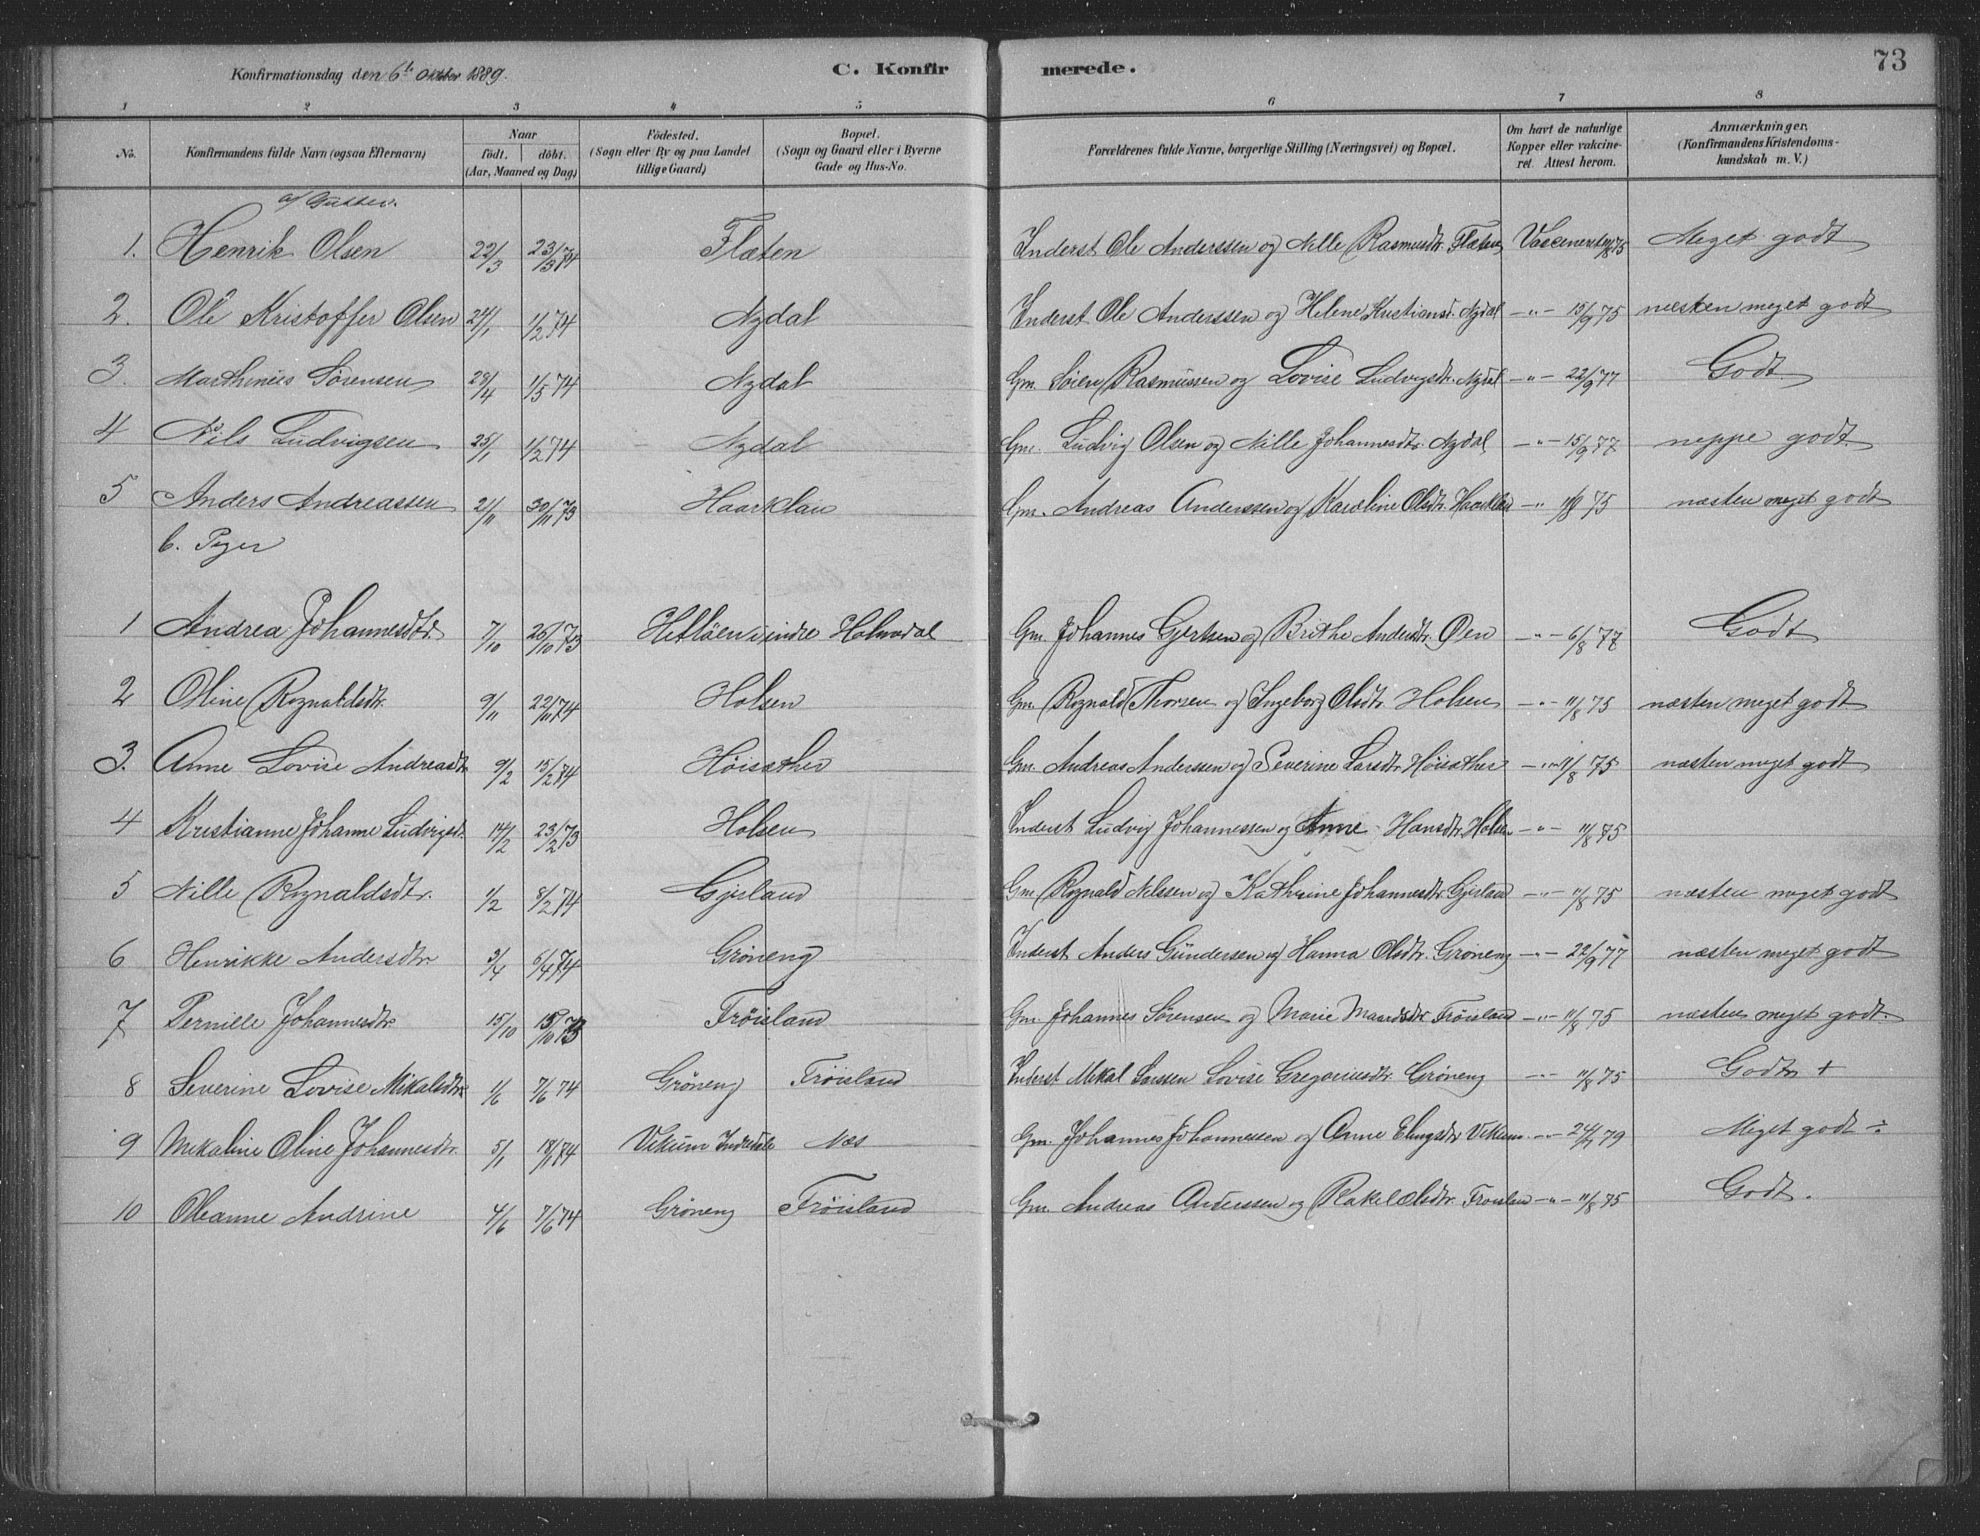 Konfirmationsdag den 6te Oktober 1889.
C. Konfirmerede.
73
1 2 3 4 5 6 7 8
No. Konfirmandens fulde Navn (ogsaa Efternavn) Naar födt. döbt. (Aar, Maaned og Dag) Födested. (Sogn eller By og paa Landet tillige Gaard) Bopæl. (Sogn og Gaard eller i Byerne Gade og Hus-No. Forældrenes fulde Navne, borgerlige Stilling (Næringsvei) og Bopæl. Om havt de naturlige Kopper eller vakcineret. Attest herom. Anmærkninger. (Konfirmandens Kristendomskundskab m. V.)
a/ Gutter.
1. Henrik Olsen 22/3 23/3 74 Flæten Inderst Ole Anderssen og Nille Rasmusdtr. Flæten 11/8 75 Meget godt
2. Ole Kristoffer Olsen 24/1 1/2 74 Nydal Inderst Ole Anderssen og Helene Kristiansd. Nydal —"— 15/9 75 næsten meget godt
3. Marthinus Sørensen 28/4 1/5 74 Nydal Gm. Sören Rasmussen og Lovise Ludvigsdtr. Nydal —"— 22/9 77 Godt
4 Nils Ludvigsen 25/1 1/2 74 Nydal Gm. Ludvig Olsen og Nille Johannesdtr. Nydal —"— 15/9 77 neppe godt
5 Anders Andreassen 21/11 30/11 73 Haarklau Gm. Andreas Anderssen og Karoline Olsdtr. Haarklau —"— 11/8 75 næsten meget godt
b. Piger
1 Andrea Johannesdtr. 7/10 26/10 73 i indre Holmedal Gm. Johannes Gjertsen og Brithe Andersdtr. Øen —"— 6/8 77 Godt
2 Oline Rognaldsdtr. 9/11 22/11 74 Holsen Gm. Rognald Thorsen og Ingeborg Olsdtr. Holsen —"— 11/8 75 næsten meget godt
3. Anne Lovise Andreasdtr. 9/2 15/2 74 Höisæther Gm. Andreas Anderssen og Severine Larsdtr. Höisæther —"— 11/8 75 næsten meget godt
4 Kristianne Johanne Ludvigsdt. 14/2 23/2 73 Holsen Inderst Ludvig Johannessen og Anne Hansdtr. Holsen —"— 11/8 75
5 Nille Rognaldsdtr. 1/2 8/2 74 Gjerland Gm. Rognald Nilssen og Kathrine Johannesdtr. Gjerland —"— 11/8 75 næsten meget godt
6 Henrikke Andersdtr. 3/4 6/4 74 Gröneng Inderst Anders Gundersen og Hanna Olsdtr. Gröneng —"— 22/9 77 næsten meget godt
7 Pernille Johannesdtr. 15/10 73 Fröisland Gm. Johannes Sörensen og Marie Fröisland —"— 11/8 75 næsten meget godt.
8 Severine Lovise Mikalsdtr. 1/6 7/6 74 Gröneng Fröisland Inderst Mikal Larssen Lovise Gregoriusdtr. Gröneng —"— 11/8 75 Godt +
9 Mikaline Oline Johannesdtr. 5/1 18/1 74 Vikum Næs Gm. Johannes Johannessen og Anne Elingsdtr. Vikum —"— 79 Meget godt ÷
10 Oleanne Andrine 4/6 7/6 74 Gröneng Fröisland Gm. Andreas Anderssen og Rakel Olsdtr. —"— 11/8 75 Godt.